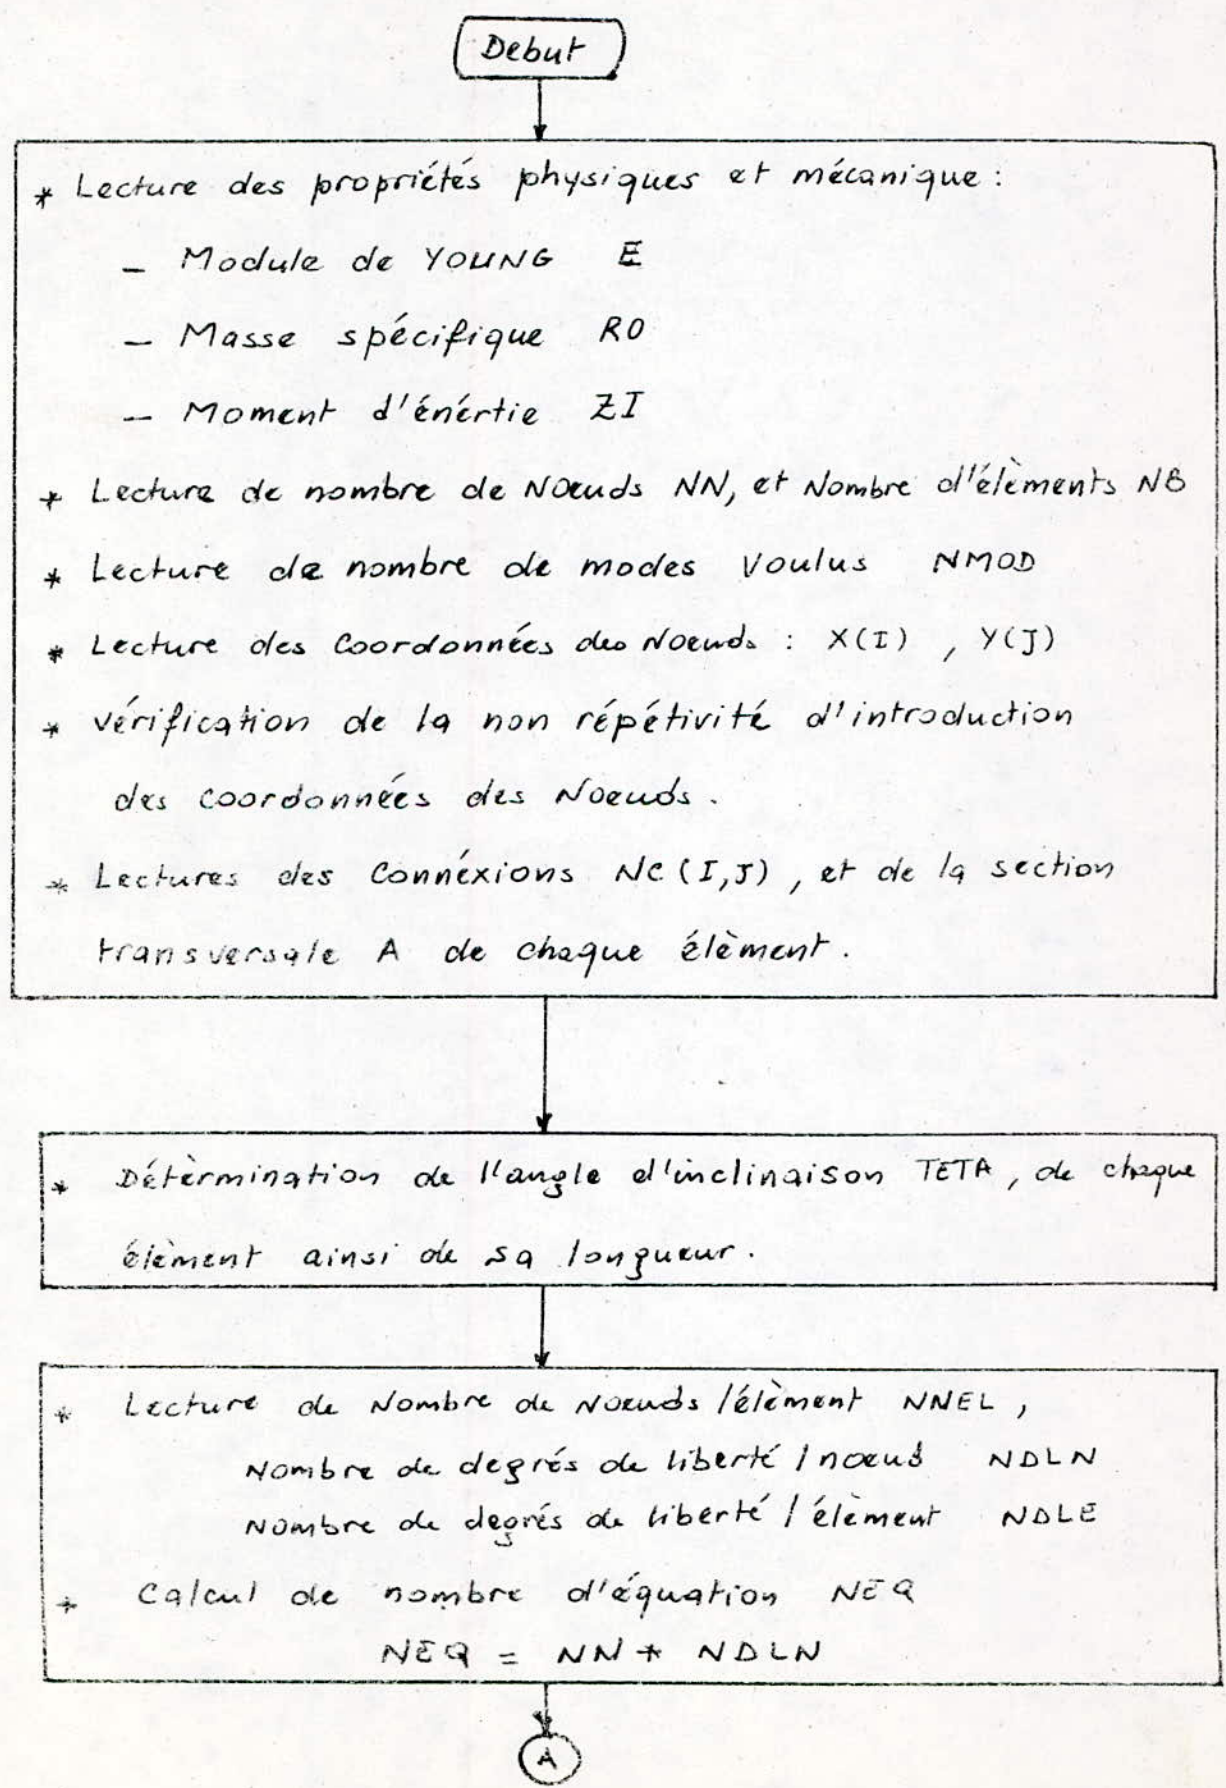 Debut
* Lecture des propriétés physiques et mécanique :
- Module de YOUNG E
- Masse spécifique RO
- Moment d'énértie ZI
* Lecture de nombre de Nœuds NN, et Nombre d'élèments NB
* Lecture de nombre de modes Voulus NMOD
* Lecture des Coordonnées des Nœuds : X(I) , Y(J)
* vérification de la non répétivité d'introduction
des coordonnées des Nœuds.
* Lectures des Connéxions NC (I,J) , et de la section
transversale A de chaque élèment.
* Détèrmination de l'angle d'inclinaison TETA, de chaque
élèment ainsi de sa longueur.
* Lecture de Nombre de Nœuds /élèment NNEL ,
Nombre de degrés de liberté / nœud NDLN
Nombre de degrés de liberté / élèment NDLE
* Calcul de nombre d'équation NEQ
NEQ = NN * NDLN
A